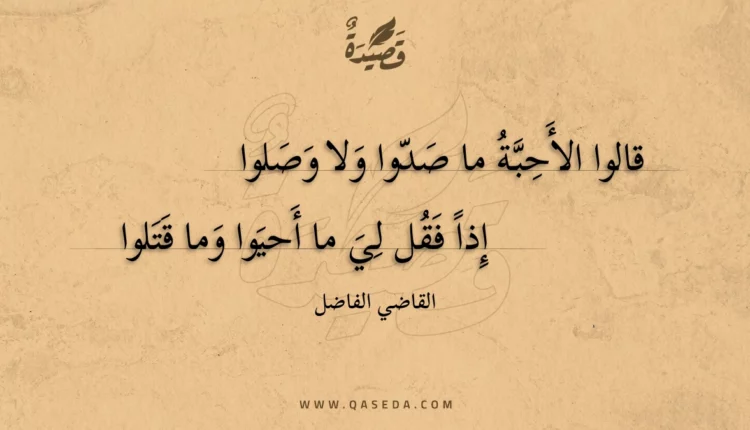 قَصِيْدَةٌ
قالوا الأَحِبَّةُ ما صَدّوا وَلا وَصَلوا
إِذاً فَقُل لِيَ ما أَحيَوا وَما قَتَلوا
القاضي الفاضل
WWW.QASEDA.COM